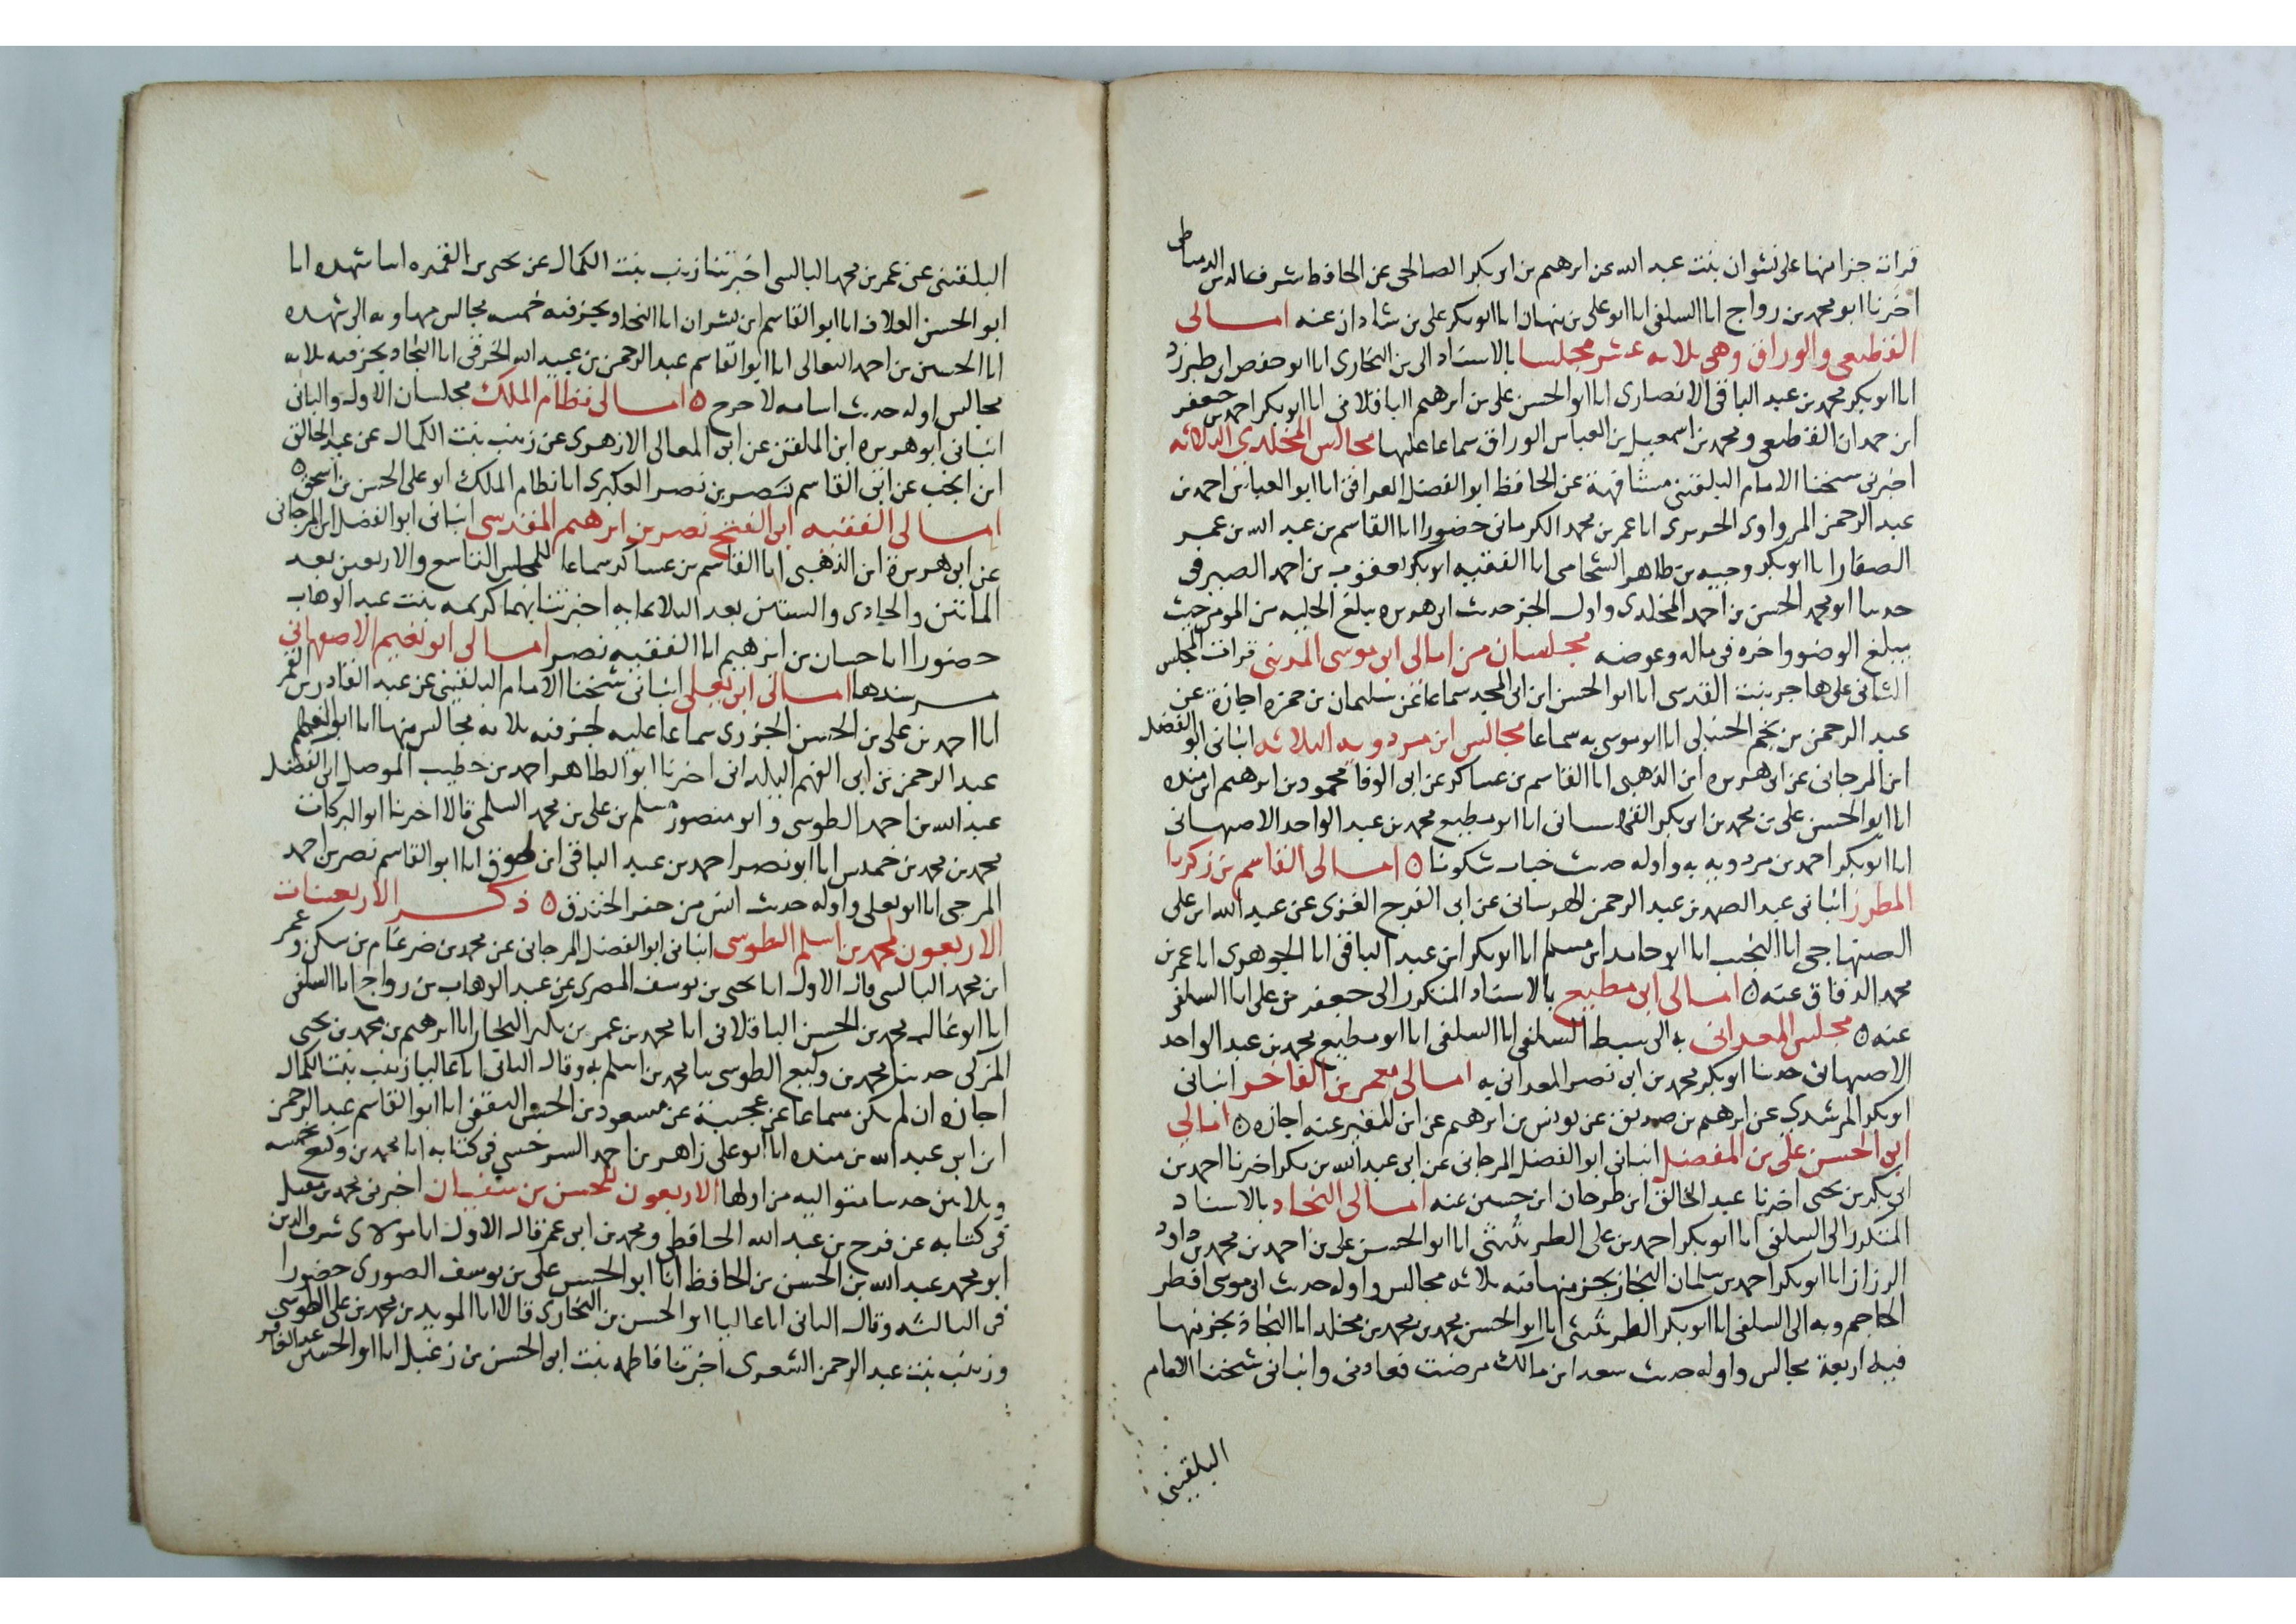 قرات جزا منها على نشوان بنت عبد الله عن ابرهيم بن ابى بكر الصالحى عن الحافظ شرف الدين الدمياطى
اخبرنا ابو محمد بن رواج انا السلفى انا ابو على بن نبهان انا ابو بكر على بن شاذان عنه امالى
القطيعى والوراق وهى ثلاثه عشر مجلسا بالاسناد الى بن البخارى انا ابو حفص ابن طبرزد
انا ابو بكر محمد بن عبد الباقى الانصارى انا ابو الحسن على بن ابرهيم الباقلانى انا ابو بكر احمد بن جعفر
ابن حمدان القطيعى ومحمد بن اسمعيل بن العباس الوراق سماعا عليهما مجالس المخلدى الثلاثه
اخبرنى شيخنا الامام البلقينى مشافهة عن الحافظ ابو الفضل العراقى انا ابو العباس احمد بن
عبد الرحمن المرداوى الحريرى انا عمر بن محمد الكرمانى حضورا انا القاسم بن عبد الله بن عمر
الصفار انا ابو بكر وجيه بن طاهر الشحامى انا الفقيه ابو بكر يعقوب بن احمد الصيرفى
حدثنا ابو محمد الحسن بن احمد المخلدى واول الجز حديث ابى هريره يبلغ الحليه من المومن حيث
يبلغ الوضو واخره فى ماله وعرضه مجلسان من امالى ابى موسى المدينى قرات المجلس
الثانى على هاجر بنت القدسى انا ابو الحسن ابن ابى المجد سماعا عن سليمان بن حمزه اجازة عن
عبد الرحمن بن نجم الحنبلى انا ابو موسى به سماعا مجالس ابن مردويه الثلاثه انبانى ابو الفضل
ابن المرجانى عن ابى هريره ابن الذهبى انا القاسم بن عساكر عن ابى الوفا محمود بن ابرهيم ابن منده
انا ابو الحسن على بن محمد بن ابى بكر انا ابو مطيع محمد بن عبد الواحد الاصبهانى
انا ابو بكر احمد بن مردويه به واوله حديث خباب شكونا ه امالى القاسم بن زكريا
المطرز انبانى عبد الصمد بن عبد الرحمن عن ابى الفرج الغزى عن عبد الله ابن على
الصنهاجى انا النجيب انا ابو حامد ابن مسلم انا ابو بكر ابن عبد الباقى انا الجوهرى انا عمر بن
محمد الدقاق عنه ه امالى ابى مطيع بالاسناد المذكور الى جعفر بن على انا السلفى
عنه ه مجلس المعدانى به الى سبط السلفى انا السلفى انا ابو مطيع محمد بن عبد الواحد
الاصبهانى حدثنا ابو بكر محمد بن ابى نصر المعدانى به امالى معمر بن الفاخر انبانى
ابو بكر المرشدى عن ابرهيم بن صديق عن يونس بن ابرهيم عن ابن المقير عنه اجازه ه امالى
ابى الحسن على بن المفضل انبانى ابو الفضل المرجانى عن ابى عبد الله بن بكر اخبرنا احمد بن
ابى بكر بن يحيى اخبرنا عبد الخالق ابن طرخان ابن حسين عنه امالى النجاد بالاسناد
المذكور الى السلفى انا ابو بكر احمد بن على الطريثيثى انا ابو الحسن على بن احمد بن محمد بن داود
الرزاز انا ابو بكر احمد بن سلمان النجاد بجز منها فيه ثلاثه مجالس واوله حديث ابى موسى افطر
الحاجم وبه الى السلفى انا ابو بكر الطريثيثى انا ابو الحسن محمد بن محمد بن مخلد انا النجاد بجز منها
فيه اربعة مجالس واوله حديث سعد ابن مالك مرضت فعادنى وانبانى شيخنا الامام
البلقينى
البلقينى عن عمر بن محمد البالسى اخبرتنا زينب بنت الكمال عن يحيى بن القميره انبا شهده انا
ابو الحسن العلاف انا ابو القاسم ابن بشران انا النجاد بجز فيه خمسه مجالس منها وبه الى شهده
انا الحسين بن احمد النعالى انا ابو القاسم عبد الرحمن بن عبيد الله الخرقى انا النجاد بجز فيه ثلاثه
مجالس اوله حديث اسامه لا حرج ه امالى نظام الملك مجلسان الاول والثانى
انبانى ابو هريره ابن الملقن عن ابى المعالى الازهرى عن زينب بنت الكمال عن عبد الخالق
ابن انجب عن ابى القاسم نصر بن نصر العكبرى انا نظام الملك ابو على الحسن بن اسحق ه
امالى الفقيه ابى الفتح نصر بن ابرهيم المقدسى انبانى ابو الفضل ابن المرجانى
عن ابى هريرة ابن الذهبى انا القاسم بن عساكر سماعا للمجلس التاسع والاربعين بعد
المائتين والحادى والستين بعد الثلاثمايه اخبرتنا بهما كريمه بنت عبد الوهاب
حضورا انا حسان بن ابرهيم انا الفقيه نصر امالى ابو نعيم الاصبهانى
مر سندها امالى ابى يعلى انبانى شيخنا الامام البلقينى عن عبد القادر بن القمر
انا احمد بن على بن الحسن الجزرى سماعا عليه لجز فيه ثلاثه مجالس منها انا ابو الفهم
عبد الرحمن بن ابى الفهم البلدانى اخبرنا ابو الطاهر احمد بن خطيب الموصل ابى الفضل
عبد الله بن احمد الطوسى وابو منصور مسلم بن على بن محمد السلمى قالا اخبرنا ابو البركات
محمد بن محمد بن خميس انا ابو نصر احمد بن عبد الباقى ابن طوق انا ابو القاسم نصر بن احمد
المرجى انا ابو يعلى واوله حديث انس من حفر الخندق ه ذكر الاربعينات
الاربعون لمحمد بن اسلم الطوسى انبانى ابو الفضل المرجانى عن محمد بن ضرغام بن سكر وعمر
ابن محمد البالسى قال الاول انا يحيى بن يوسف المصرى عن عبد الوهاب بن رواج انا السلفى
انا ابو غالب محمد بن الحسن الباقلانى انا محمد بن عمر بن بكير النجار انا ابرهيم بن محمد بن يحيى
المزكى حدثنا محمد بن وكيع الطوسى ثنا محمد بن اسلم به وقال الثانى انا عاليا زينب بنت الكمال
اجازه ان لم يكن سماعا عن عجيبة عن مسعود بن الحسن الثقفى انا ابو القاسم عبد الرحمن
ابن ابى عبد الله بن منده انا ابو على زاهر بن احمد السرخسى فى كتابه انا محمد بن وكيع بخمسه
وثلاثين حديثا متواليه من اولها الاربعون للحسن بن سفيان اخبرنى محمد بن مقبل
فى كتابه عن فرج بن عبد الله الحافظ ومحمد بن ابى عمر قال الاول انا مولاى شرف الدين
ابو محمد عبد الله بن الحسن بن الحافظ انا ابو الحسن على بن يوسف الصورى حضورا
فى الثالثه وقال الثانى انا عاليا ابو الحسن بن البخارى قالا انا المويد بن محمد بن على الطوسى
وزينب بنت عبد الرحمن الشعرى اخبرتنا فاطمه بنت ابى الحسن بن زعبل انا ابو الحسين عبد الغافر